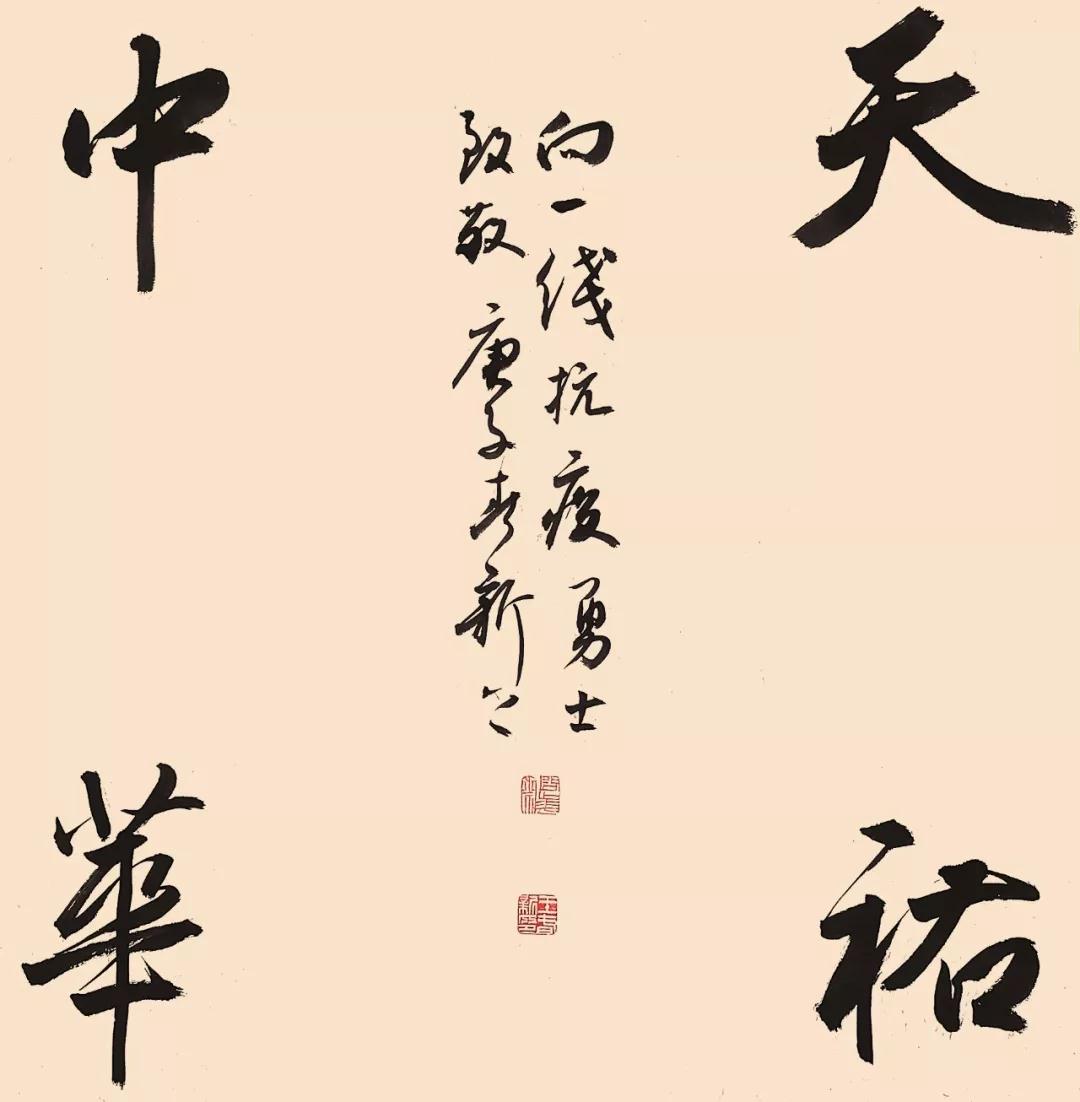 天祐
向一綫抗疫勇士
致敬 庚子春新
中華